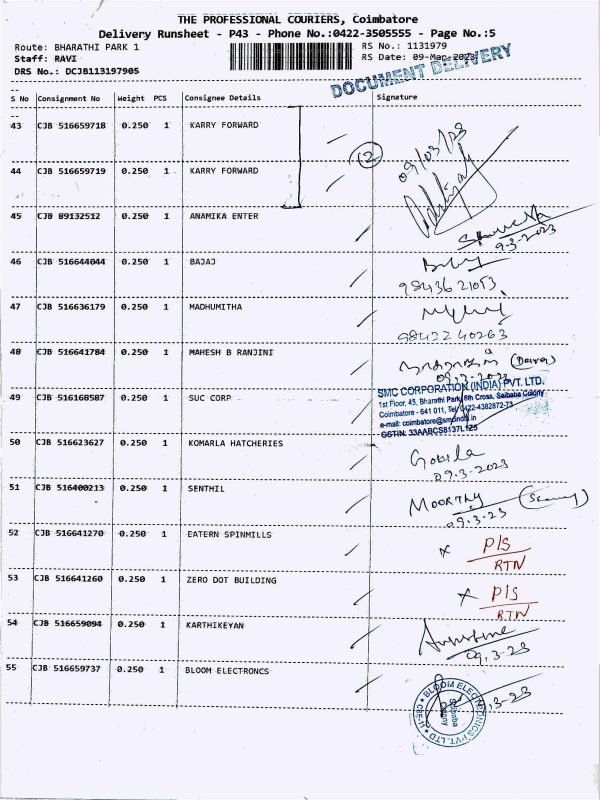 THE PROFESSIONAL COURIERS, Coimbatore
Delivery Runsheet - P43 - Phone No.:0422-3505555 - Page No.:5
Route: BHARATHI PARK 1 RS No.: 1131979
Staff: RAVI RS Date: 09-Mar-2023
DRS No.: DCJB113197905
DOCUMENT DELIVERY
S No Consignment No Weight PCS Consignee Details Signature
43 CJB 516659718 0.250 1 KARRY FORWARD
2 09/03/23
44 CJB 516659719 0.250 1 KARRY FORWARD
45 CJB 89132512 0.250 1 ANAMIKA ENTER
9-3-2023
46 CJB 516644044 0.250 1 BAJAJ
9843621053
47 CJB 516636179 0.250 1 MADHUMITHA
9842240263
48 CJB 516641784 0.250 1 MAHESH B RANJINI
09.3.2023
49 CJB 516168587 0.250 1 SUC CORP
SMC CORPORATION (INDIA) PVT. LTD.
1st Floor, 45, Bharathi Park, 8th Cross, Saibaba Colony
Coimbatore - 641 011, Tel: 0422-4382872-73
e-mail: coimbatore@smcindia.in
GSTIN: 33AABCS8137L1Z5
50 CJB 516623627 0.250 1 KOMARLA HATCHERIES Gokila
09.3-2023
51 CJB 516400213 0.250 1 SENTHIL MOORTHY
09.3-23
52 CJB 516641270 0.250 1 EATERN SPINMILLS x P/S
RTN
53 CJB 516641260 0.250 1 ZERO DOT BUILDING x P/S
RTN
54 CJB 516659094 0.250 1 KARTHIKEYAN
09.3-23
55 CJB 516659737 0.250 1 BLOOM ELECTRONCS
BLOOM ELECTRONICS PVT. LTD CBE-11
.3-23